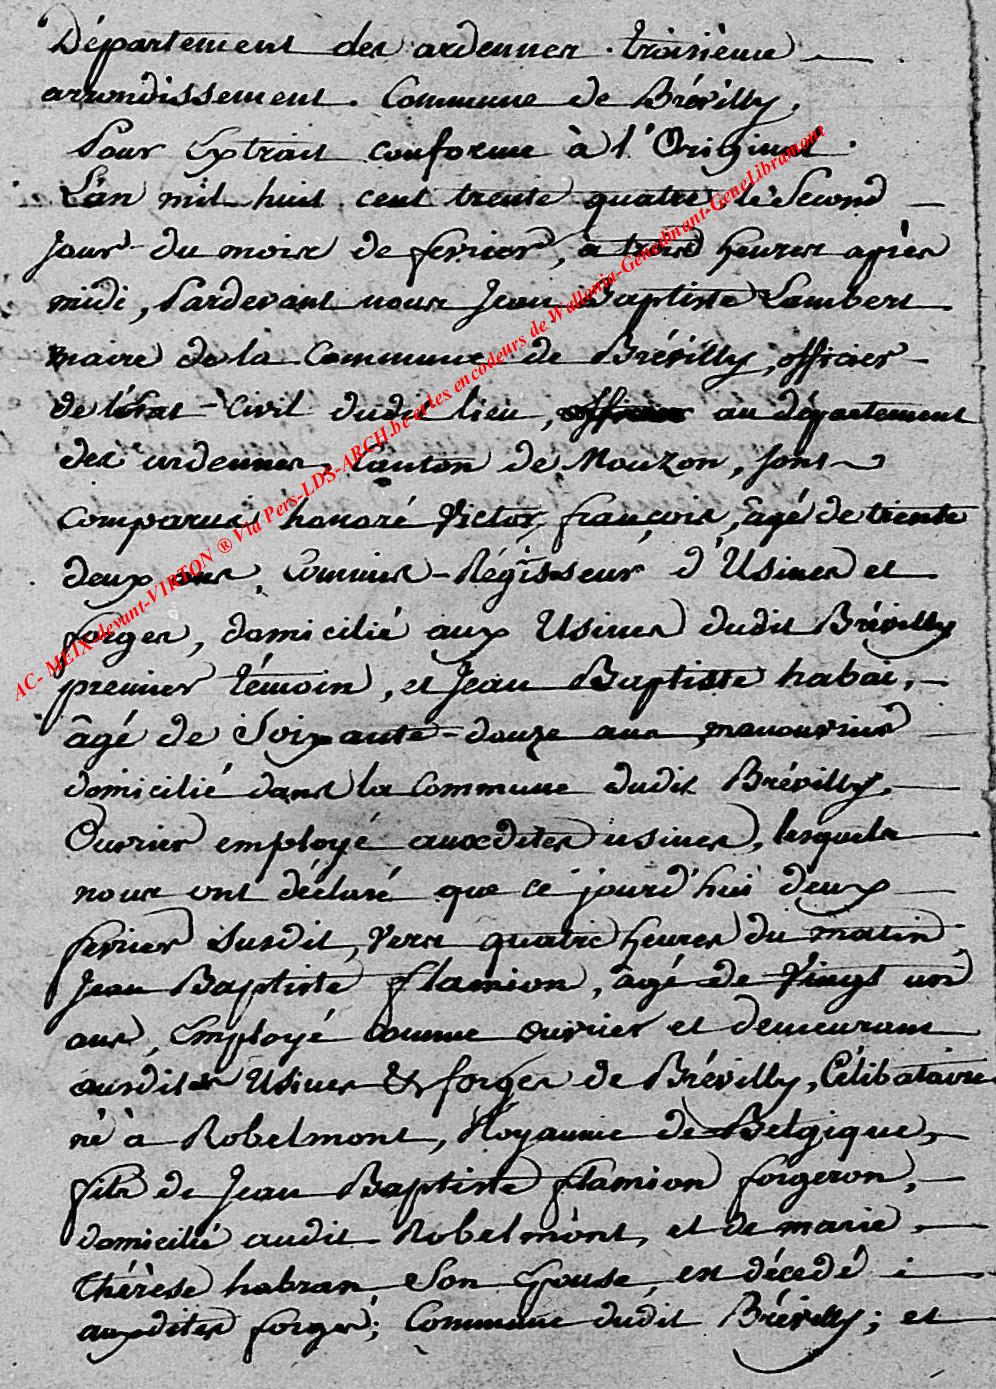 Département des ardennes . troisième
arrondissement . Commune de Brévilly,
Pour Extrait conforme à l'Original .
L'an mil huit cent trente quatre le Second
Jour du mois de fevrier, à trois heures après
midi, Pardevant nous Jean Baptiste Lambert
maire de la Commune de Brévilly, officier
de l'état-Civil dudit lieu, au département
des ardennes, Canton de Mouzon, sont
Comparus honoré Victor françois, âgé de trente
deux ans, Commis-Régisseur d'Usines et
forges, domicilié aux Usines dudit Brévilly
premier témoin, et Jean Baptiste habai,
âgé de Soixante-douze ans, manouvrier
domicilié dans la Commune dudit Brévilly,
Ouvrier employé auxdites usines, lesquels
nous ont déclaré que ce jourd'hui deux
fevrier susdit, vers quatre heures du matin,
Jean Baptiste flamion, âgé de Vingt un
ans, Employé comme ouvrier et demeurant
ausdites Usines & forges de Brévilly, Célibataire
né à Robelmont, Royaume de Belgique,
fils de Jean Baptiste flamion forgeron,
domicilié audit Robelmont, et de marie
Thérèse habran Son Epouse, est décédé
auxdites forges, Commune dudit Brévilly; et
AC- MEIX-devant-VIRTON ® Via Pers-LDS-ARCH.be et les encodeurs de Wallonia-Genedinant-GeneLibramont